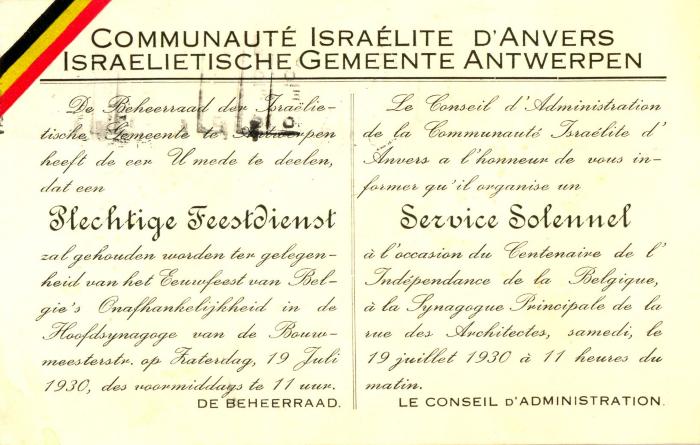 COMMUNAUTÉ ISRAÉLITE D'ANVERS
ISRAELIETISCHE GEMEENTE ANTWERPEN
De Beheerraad der Israëlie-
tische Gemeente te Antwerpen
heeft de eer U mede te deelen,
dat een
Plechtige Feestdienst
zal gehouden worden ter gelegen-
heid van het Eeuwfeest van Bel-
gie's Onafhankelijkheid in de
Hoofdsynagoge van de Bouw-
meesterstr. op Zaterdag, 19 Juli
1930, des voormiddags te 11 uur.
DE BEHEERRAAD.
Le Conseil d'Administration
de la Communauté Israélite d'
Anvers a l'honneur de vous in-
former qu'il organise un
Service Solennel
à l'occasion du Centenaire de l'
Indépendance de la Belgique,
à la Synagogue Principale de la
rue des Architectes, samedi, le
19 juillet 1930 à 11 heures du
matin.
LE CONSEIL D'ADMINISTRATION.